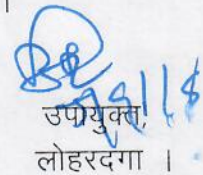 उपायुक्त,
लोहरदगा ।